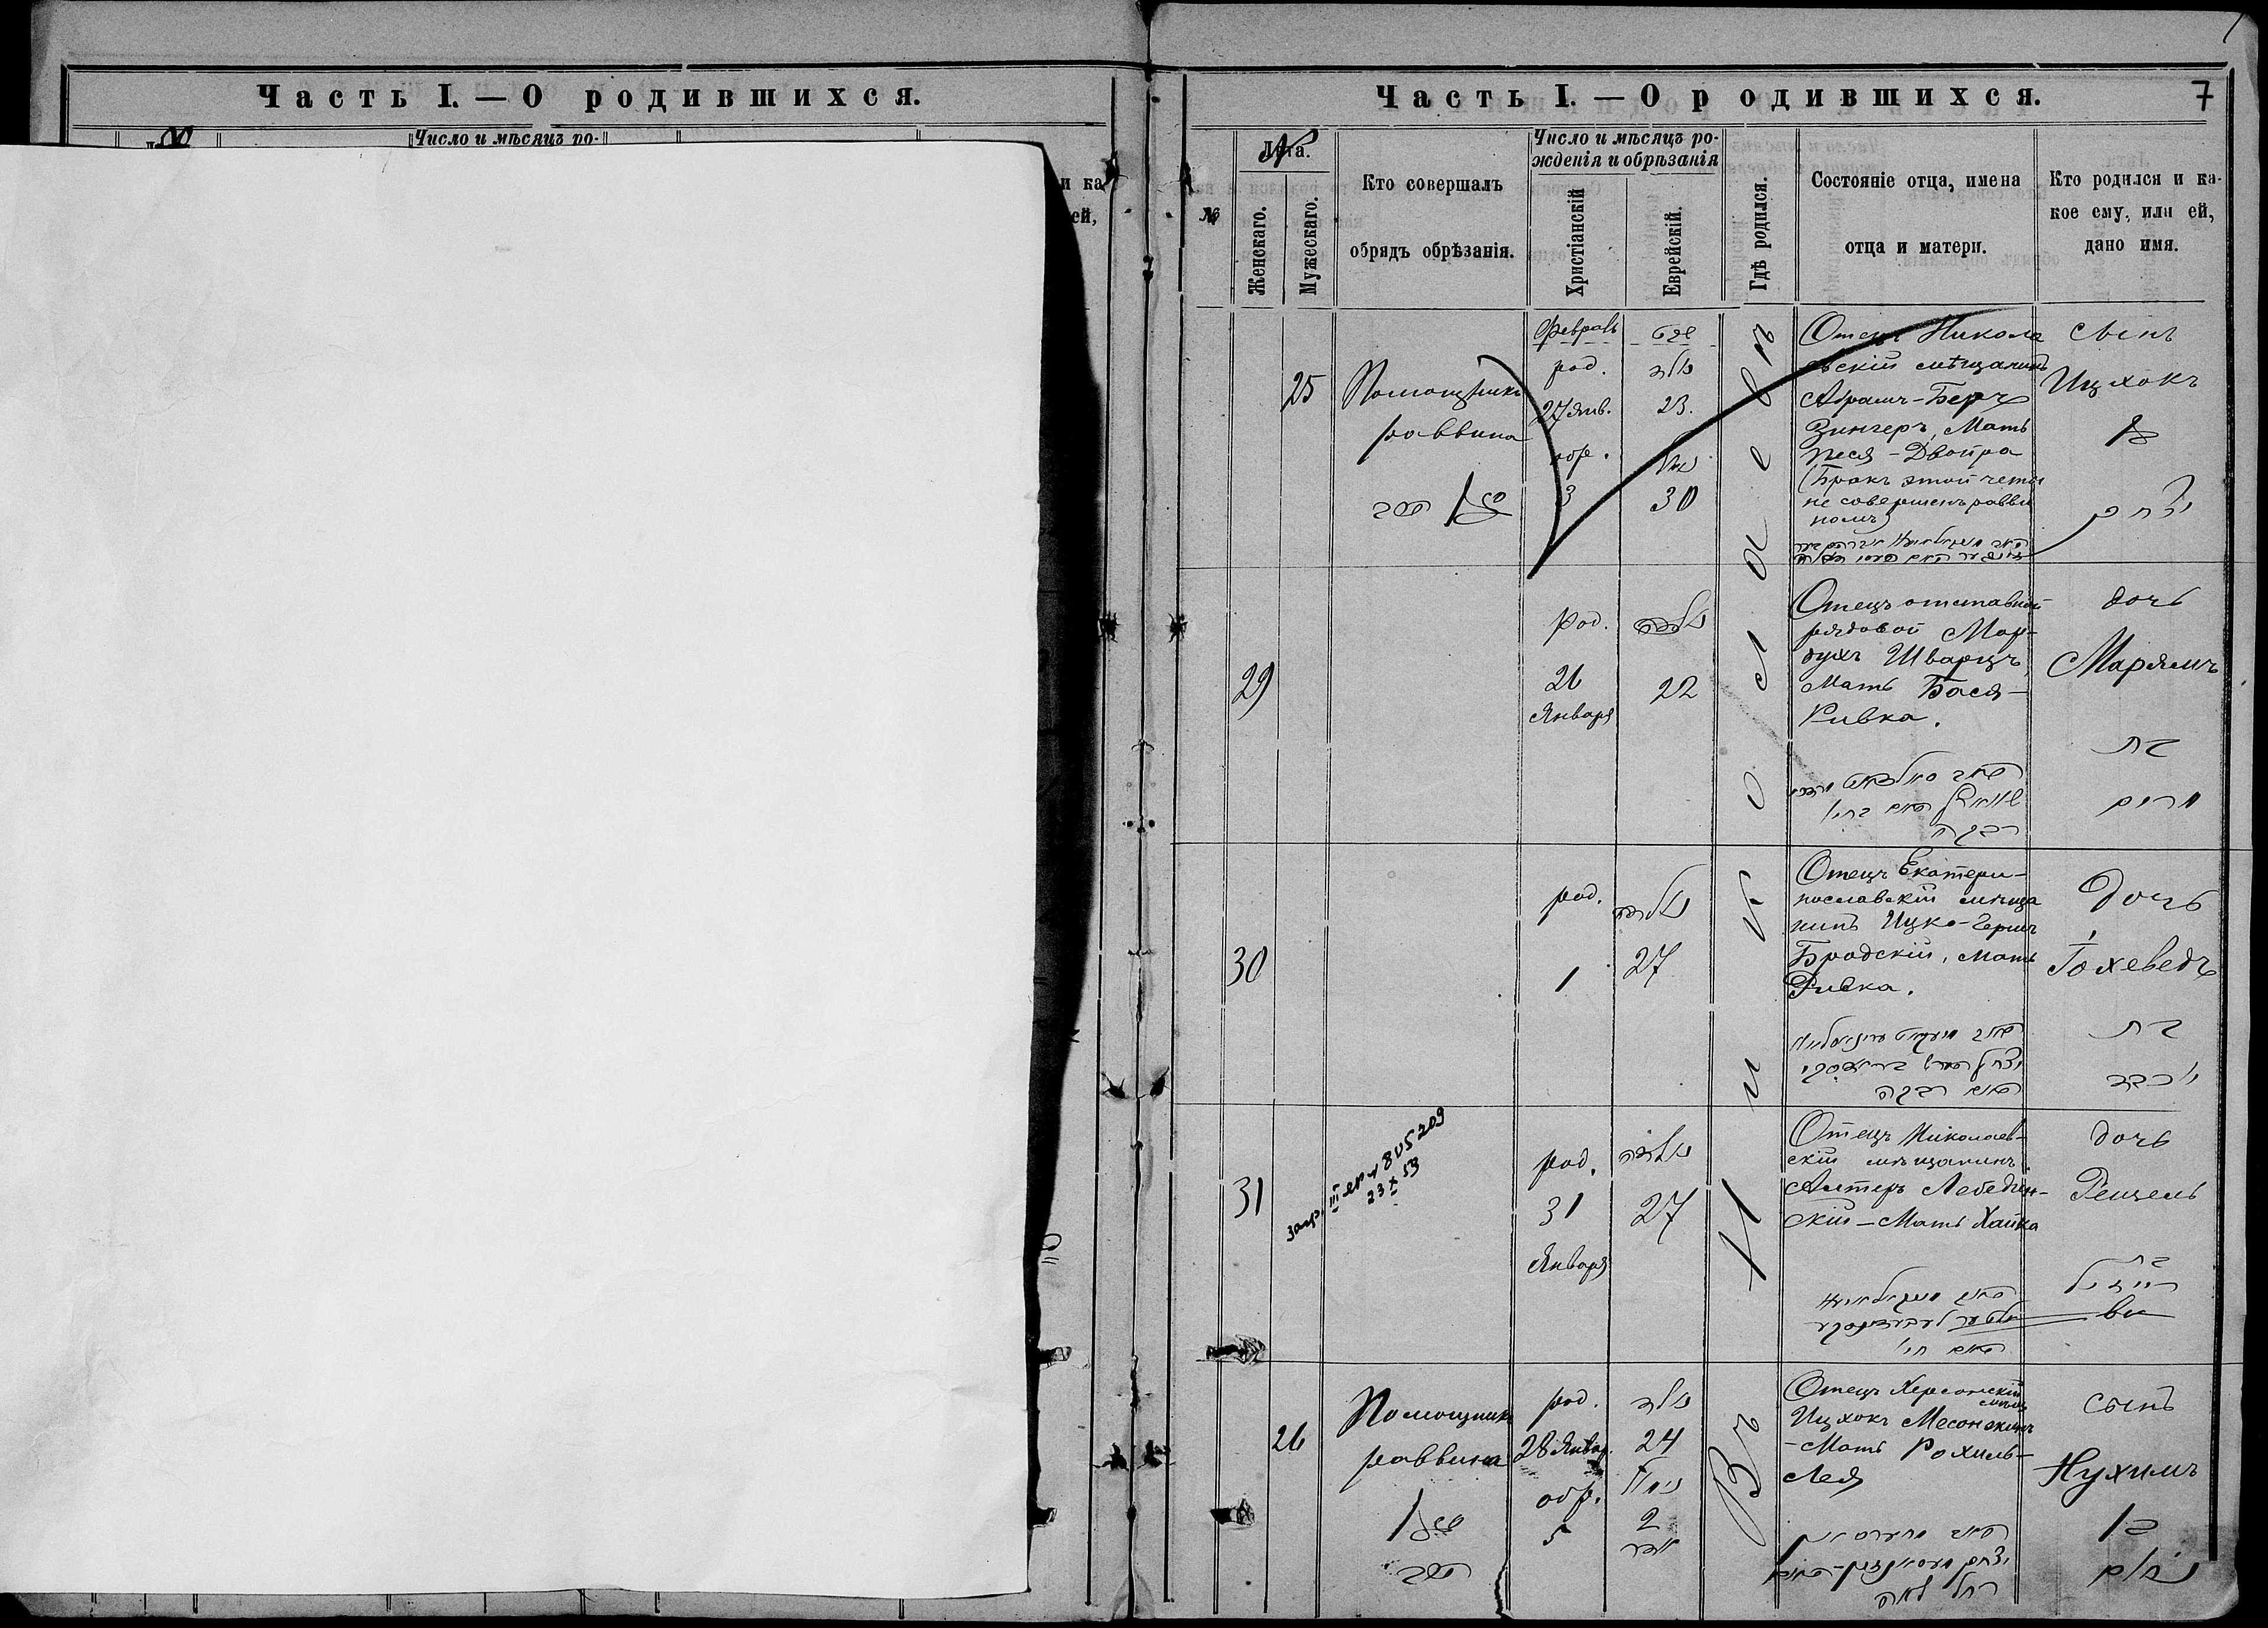 Часть I. — О родившихся.
Число и мѣсяцъ ро-
и ка
ей,
Часть I. — О родившихся.
7
№
Лѣта.
Женскаго.
Мужескаго.
Кто совершалъ
обрядъ обрѣзанія.
Число и мѣсяцъ ро-
жденія и обрѣзанія
Христіанскій
Еврейскій.
Гдѣ родился.
Состояніе отца, имена
отца и матери.
Кто родился и ка-
кое ему, или ей,
дано имя.
Въ Николаевѣ
25
Помощникъ
раввина
Февраль
род.
27 Янв.
обр.
3
שבט
23.
30
Отецъ Никола
евскій мѣщанинъ
Абрамъ-Беръ
Зингеръ, Мать
Песя-Двойра
(Бракъ этой четы
не совершенъ равви
номъ)
сынъ
Ицхокъ
בן
יצחק
29
род.
26
Января
22
Отецъ отставной
рядовой Мор-
духъ Шварцъ,
Мать Бася-
Ривка.
רבקה
дочь
Марьямъ
בת
מרים
30
род.
1
27
Отецъ Екатери-
нославскій мѣща
нинъ Ицко-Гершъ
Бродскій, Мать
Ривка.
האם רבקה
Дочь
Іохеведъ
בת
יוכבד
31
загр. III ер № 805209
23 X 53
род.
31
Января
27
Отецъ Николаев-
скій мѣщанинъ
Алтеръ Лебедин-
скій — Мать Хайка
дочь
Рейзель
בת
רייזיל
26
Помощникъ
раввина
род.
28 Январ.
обр.
5
24
2
אדר
Отецъ Херсонскій
мѣщ
Ицхокъ Месонжникъ
- Мать Рохиль-
Лея
רחל לאה
сынъ
Нухимъ
בן
נחום